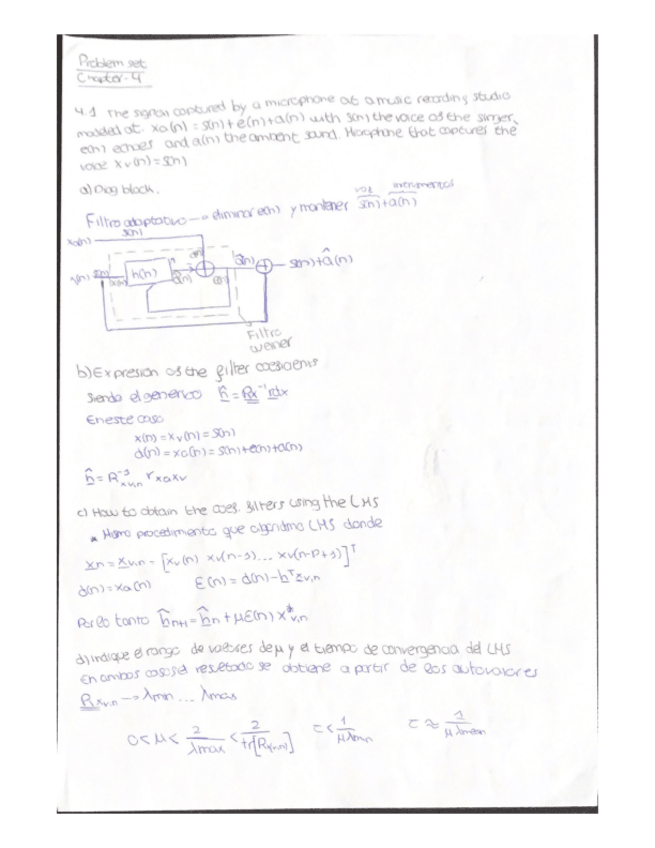 Problem set
Chapter-4
4.1 The signal captured by a microphone at a music recording studio
modeled at: xa(n) = s(n) + e(n) + a(n) with s(n) the voice of the singer,
e(n) echoes and a(n) the ambient sound. Microphone that captures the
voice xv(n) = s(n)
a) Diag block.
voz instrumentos
Filtro adaptativo → eliminar e(n) y mantener s(n) + a(n)
xa(n)
s(n)
h(n)
s(n) + â(n)
Filtro
weiner
b) Expresion of the filter coeficients
Siendo el generico ĥ = Rx⁻¹ rdx
En este caso
x(n) = xv(n) = s(n)
d(n) = xa(n) = s(n) + e(n) + a(n)
ĥ = R⁻¹xv,n rxaxv
c) How to obtain the coef. filters using the LMS
Mismo procedimiento que algoritmo LMS donde
xn = xv,n = [xv(n) xv(n-1)... xv(n-P+1)]ᵀ
d(n) = xa(n) ε(n) = d(n) - hᵀxv,n
Por lo tanto ĥn+1 = ĥn + με(n) x*v,n
d) indique el rango de valores de μ y el tiempo de convergencia del LMS
En ambos casos el resultado se obtiene a partir de los autovalores
Rxv,n → λmin ... λmax
0 < μ < 2/λmax < 2/tr[Rxv,n] τ < 1/μλmin τ ≈ 1/μλmean